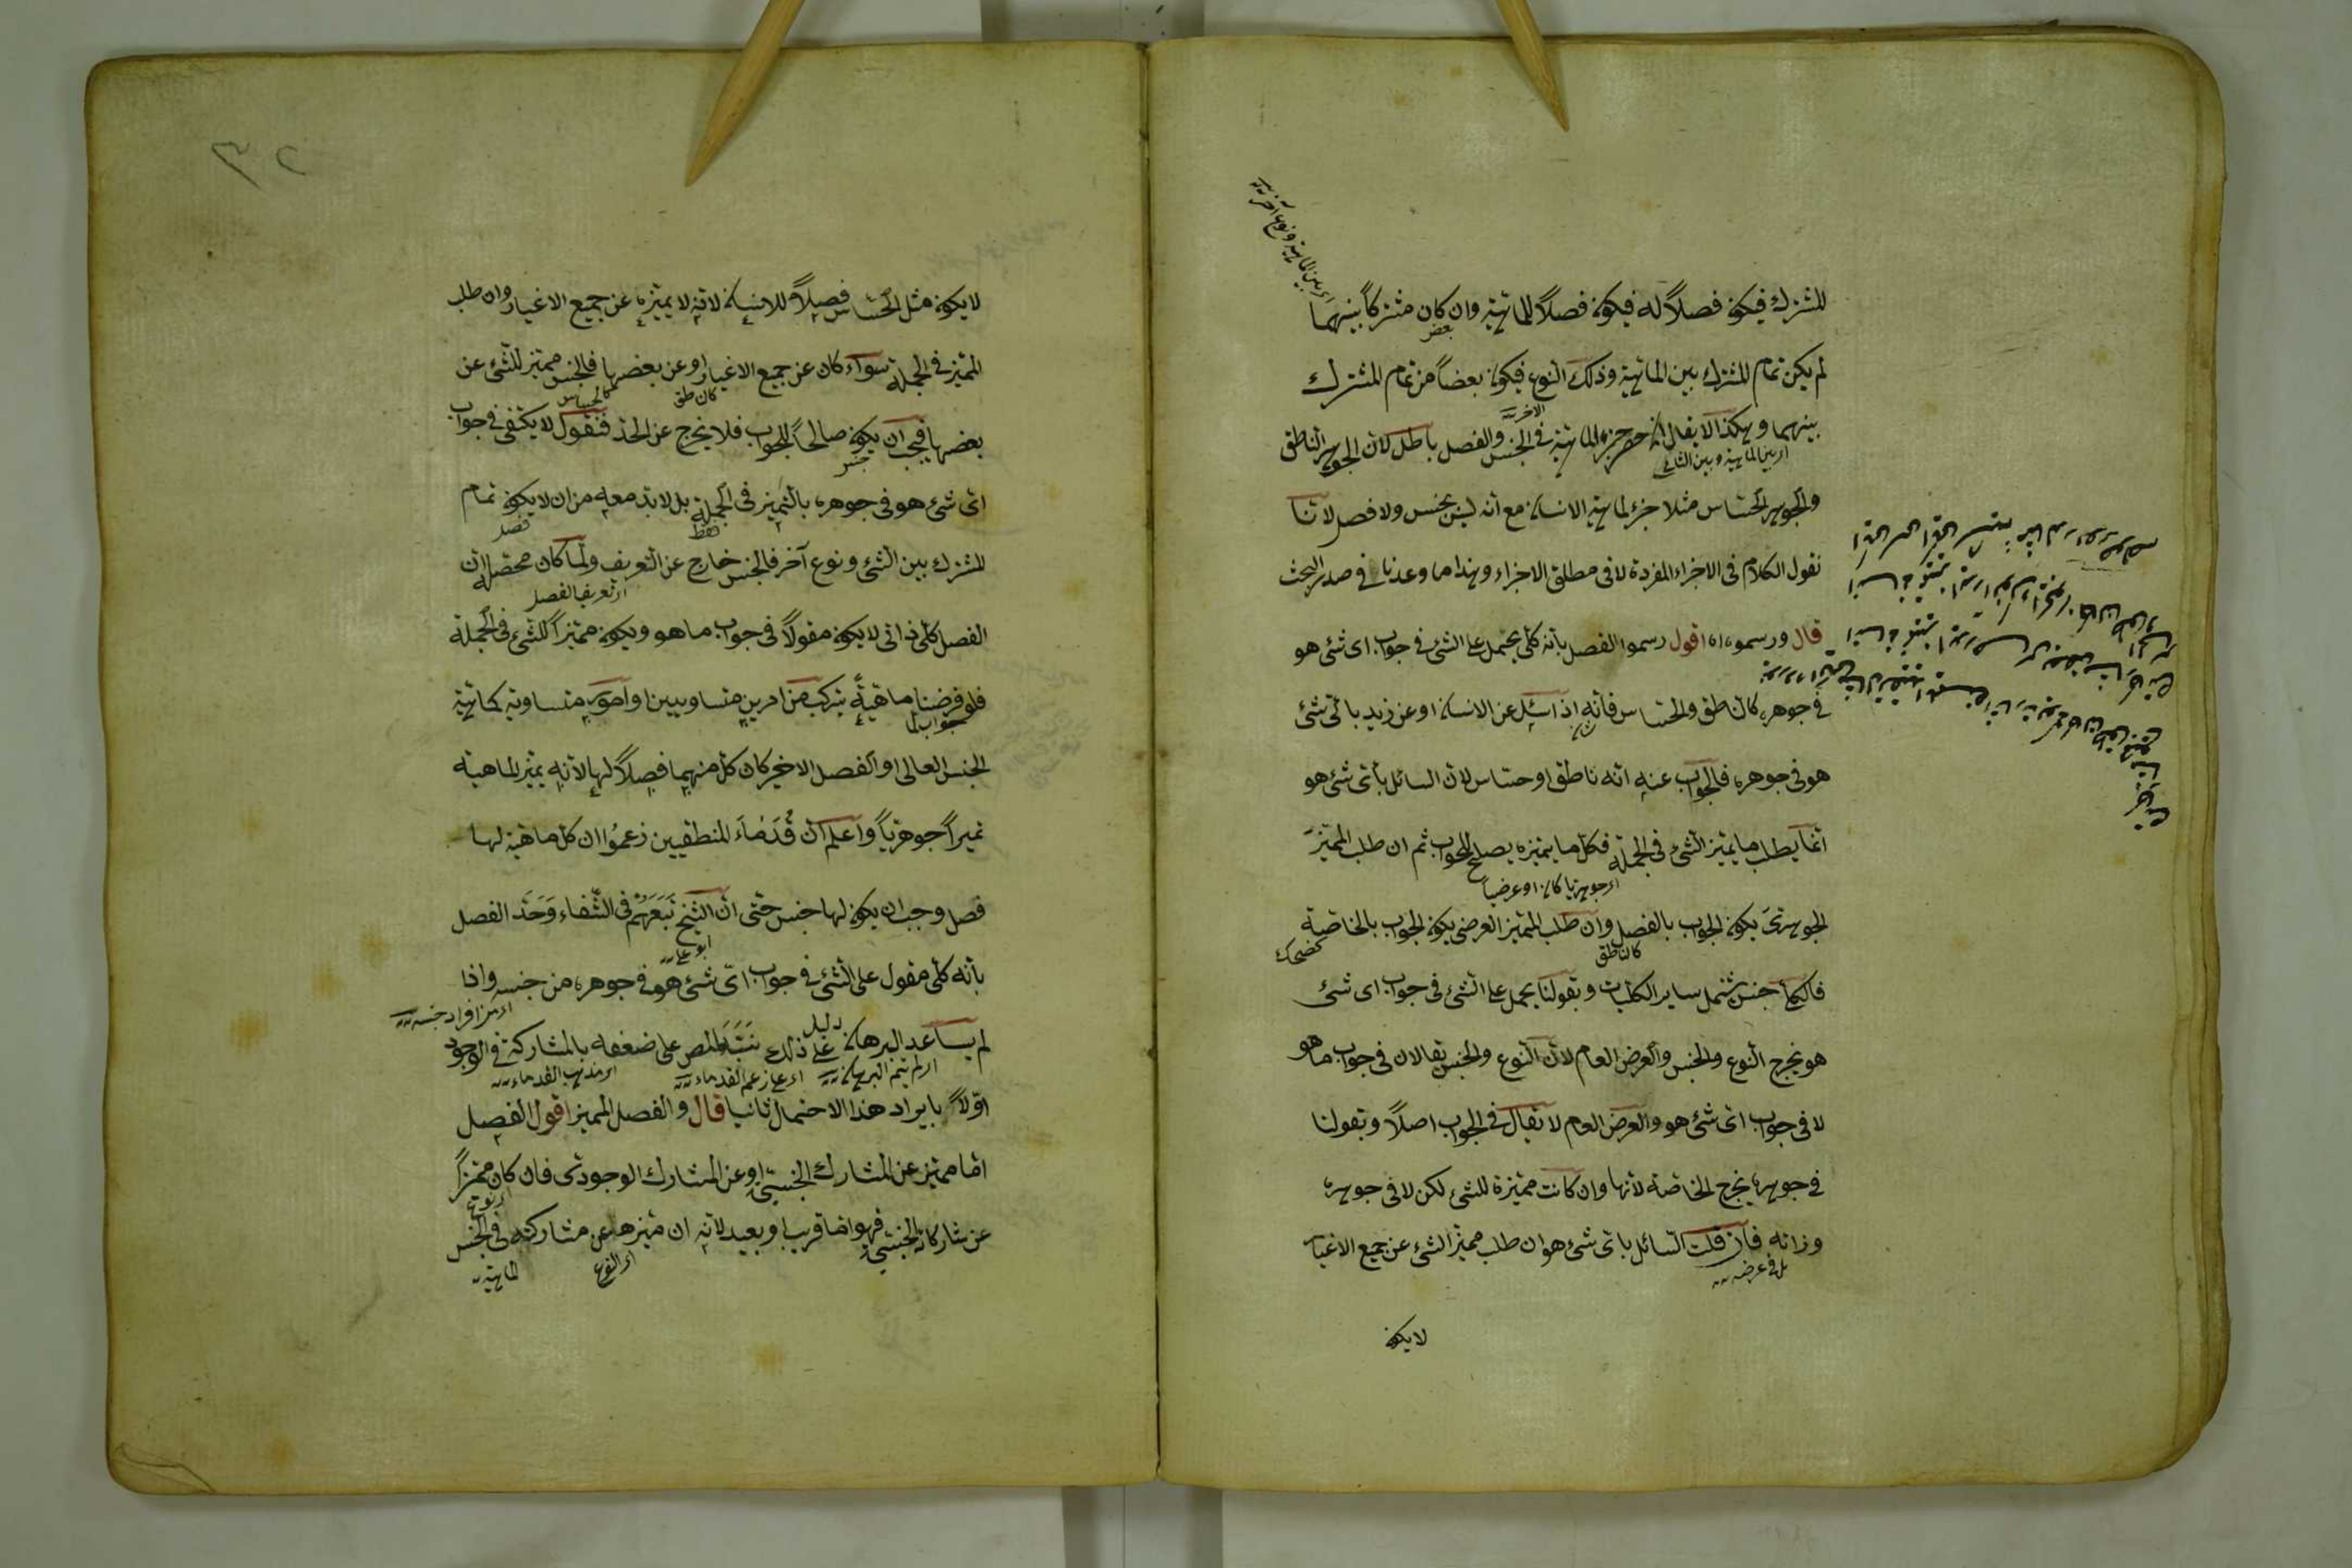 للمشترك فيكون فصلاً له فيكون فصلاً للماهية وان كان مشتركاً بينهما
اى بين الماهية ونوع آخر
بعض
لم يكن تمام المشترك بين الماهية وذلك النوع فيكون بعضاً من تمام المشترك
بينهما وهكذا لا يقال حصر جزء الماهية فى الجنس والفصل باطل لان الجوهر الناطق
اى بين الماهية وبين الثانى
والجوهر الحساس مثلا جزء لماهية الانسان مع انه ليس بجنس ولا فصل لانا
نقول الكلام فى الاجزاء المفردة لا فى مطلق الاجزاء وهذا ما وعدنا فى صدر البحث
قال ورسموه اه اقول رسموا الفصل بانه كلى يحمل على الشئ فى جواب اى شئ هو
فى جوهره كالناطق والحساس فانه اذا سئل عن الانسان او عن زيد باى شئ
هو فى جوهره فالجواب عنه انه ناطق او حساس لان السائل بأى شئ هو
انما يطلب ما يميز الشئ فى الجملة فكل ما يميزه يصلح للجواب ثم ان طلب المميز
اى جوهريا كان او عرضيا
الجوهرى يكون الجواب بالفصل وان طلب المميز العرضى يكون الجواب بالخاصة
كالناطق
كضحك
فالكلى جنس يشمل ساير الكليات وبقولنا يحمل على الشئ فى جواب اى شئ
هو يخرج النوع والجنس والعرض العام لان النوع والجنس يقالان فى جواب ما هو
لا فى جواب اى شئ هو والعرض العام لا يقال فى الجواب اصلاً وبقولنا
فى جوهره يخرج الخاصة لانها وان كانت مميزة للشئ لكن لا فى جوهره
وذاته فان قلت السائل باى شئ هو ان طلب مميز الشئ عن جميع الاغيار
بل فى عرضه
لا يكون
٣٢
لا يكون مثل الحساس فصلاً للانسان لانه لا يميزه عن جميع الاغيار وان طلب
المميز فى الجملة سواء كان عن جميع الاغيار او عن بعضها فالجنس مميز للشئ عن
كالحساس
بعضها فيجب ان يكون صالحاً للجواب فلا يخرج عن الحد فنقول لا يكتفى فى جواب
جنس
اى شئ هو فى جوهره بالتميز فى الجملة بل لا بد معه من ان لا يكون تمام
فقط
فصل
المشترك بين الشئ ونوع آخر فالجنس خارج عن التعريف ولما كان محصله ان
اى تعريف الفصل
الفصل كلى ذاتى لا يكون مقولاً فى جواب ما هو ويكون مميزاً للشئ فى الجملة
فلو فرضنا ماهيةً يتركب من امرين متساويين او امور متساوية كماهية
جواب لما
الجنس العالى او الفصل الاخير كان كل منهما فصلاً لها لانه يميز الماهية
تميزاً جوهرياً واعلم ان قدماء المنطقيين زعموا ان كل ماهية لها
فصل وجب ان يكون لها جنس حتى ان الشيخ تبعهم فى الشفاء وحد الفصل
ابو على
بأنه كلى مقول على الشئ فى جواب اى شئ هو فى جوهره من جنسه واذا
اى من افراد جنسه
لم يساعد البرهان على ذلك نبه المص على ضعفه بالمشاركة فى الوجود
دليل
اى لم يتم البرهان
اى على زعم القدماء
اى مذهب القدماء
اوّلاً بايراد هذا الاحتمال ثانيا قال والفصل المميز اقول الفصل
اما مميز عن المشارك الجنسى او عن المشارك الوجودى فان كان مميزاً
عن مشاركات الجنسى فهو اما قريب او بعيد لانه ان ميزها عن مشاركته فى الجنس
اى النوع
الماهية